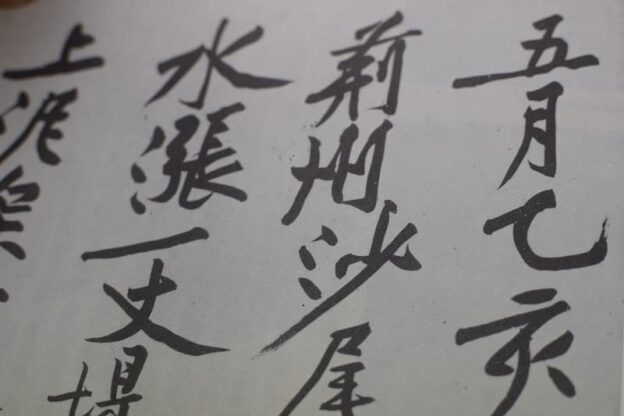 五月乙亥
荆州沙尾
水漲一丈堤
上泥